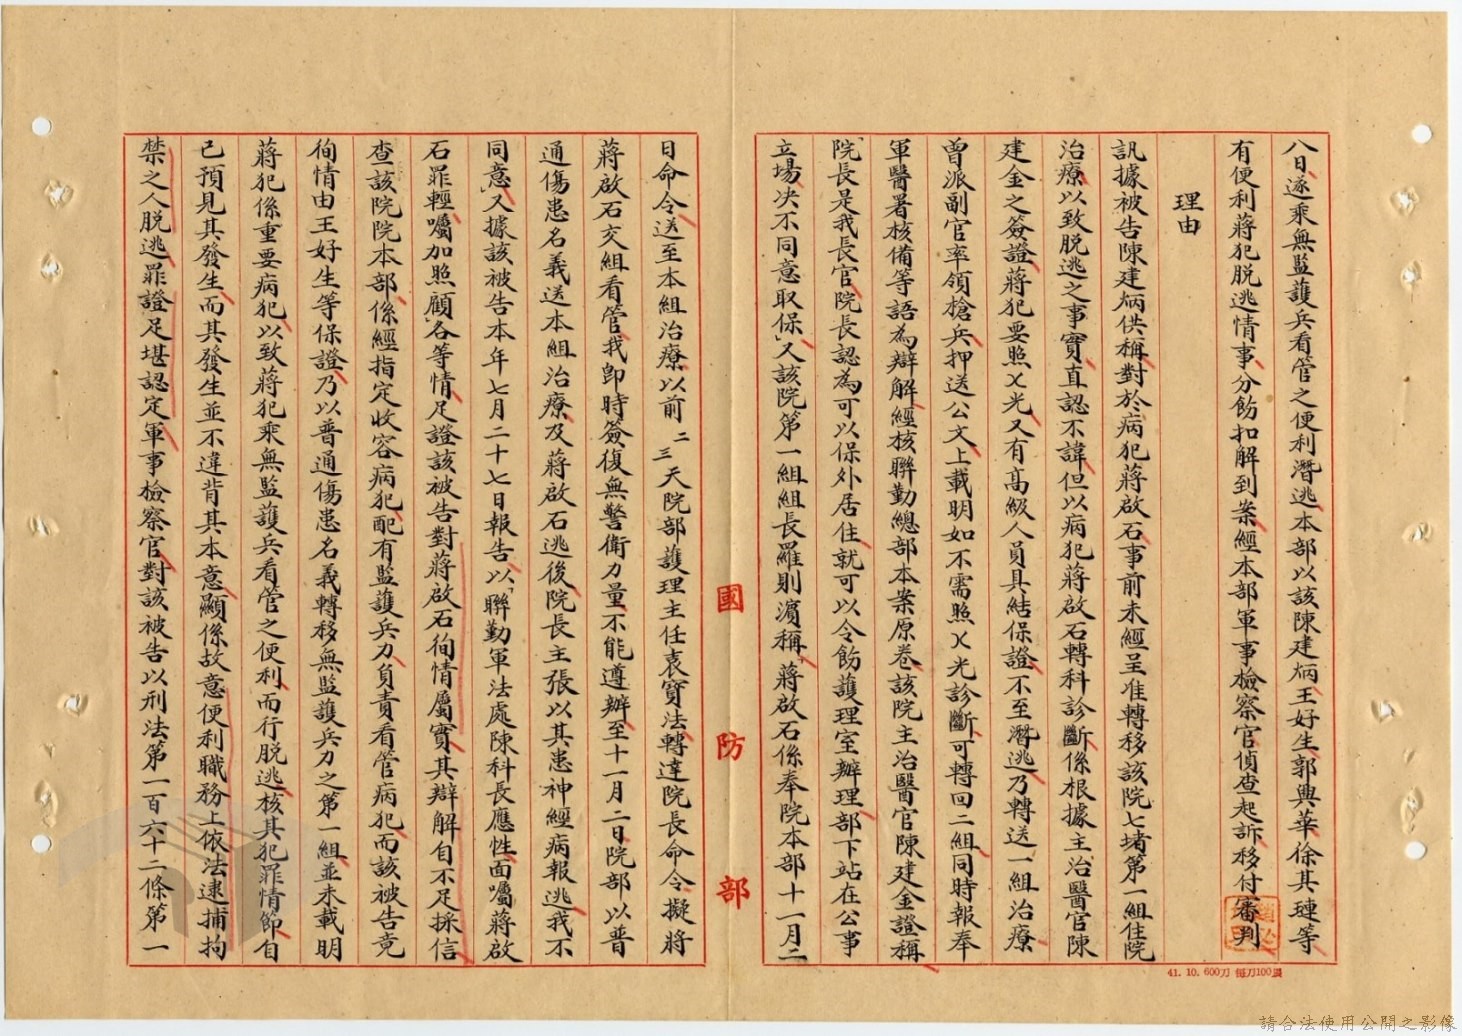 八日遂乘無監護兵看管之便利潛逃本部以該陳建炳王好生郭興華徐其璉等
有便利蔣犯脫逃情事分飭扣解到案經本部軍事檢察官偵查起訴移付審判
理由
訊據被告陳建炳供稱對於病犯蔣啟石事前未經呈准轉移該院七堵第一組住院
治療以致脫逃之事實直認不諱但以病犯蔣啟石轉科診斷係根據主治醫官陳
建金之簽證蔣犯要照乂光又有高級人員具結保證不至潛逃乃轉送一組治療
曾派副官率領槍兵押送公文上載明如不需照乂光診斷可轉回二組同時報奉
軍醫署核備等語為辯解經核聯勤總部本案原卷該院主治醫官陳建金證稱
「院長是我長官院長認為可以保外居住就可以令飭護理室辦理部下站在公事
立場決不同意取保」又該院第一組組長羅則濱稱「蔣啟石係奉院本部十一月二
日命令送至本組治療以前二三天院部護理主任袁寶法轉達院長命令擬將
蔣啟石交組看管我即時簽復無警衛力量不能遵辦至十一月二日院部以普
通傷患名義送本組治療及蔣啟石逃後院長主張以其患神經病報逃我不
同意」又據該被告本年七月二十七日報告以「聯勤軍法處陳科長應性面囑蔣啟
石罪輕囑加照顧」各等情足證該被告對蔣啟石徇情屬實其辯解自不足採信
查該院院本部係經指定收容病犯配有監護兵力負責看管病犯而該被告竟
徇情由王好生等保證乃以普通傷患名義轉移無監護兵力之第一組並未載明
蔣犯係重要病犯以致蔣犯乘無監護兵看管之便利而行脫逃核其犯罪情節自
已預見其發生而其發生並不違背其本意顯係故意便利職務上依法逮捕拘
禁之人脫逃罪證足堪認定軍事檢察官對該被告以刑法第一百六十二條第一
國防部
41.10.600刀 每刀100張
請合法使用公開之影像